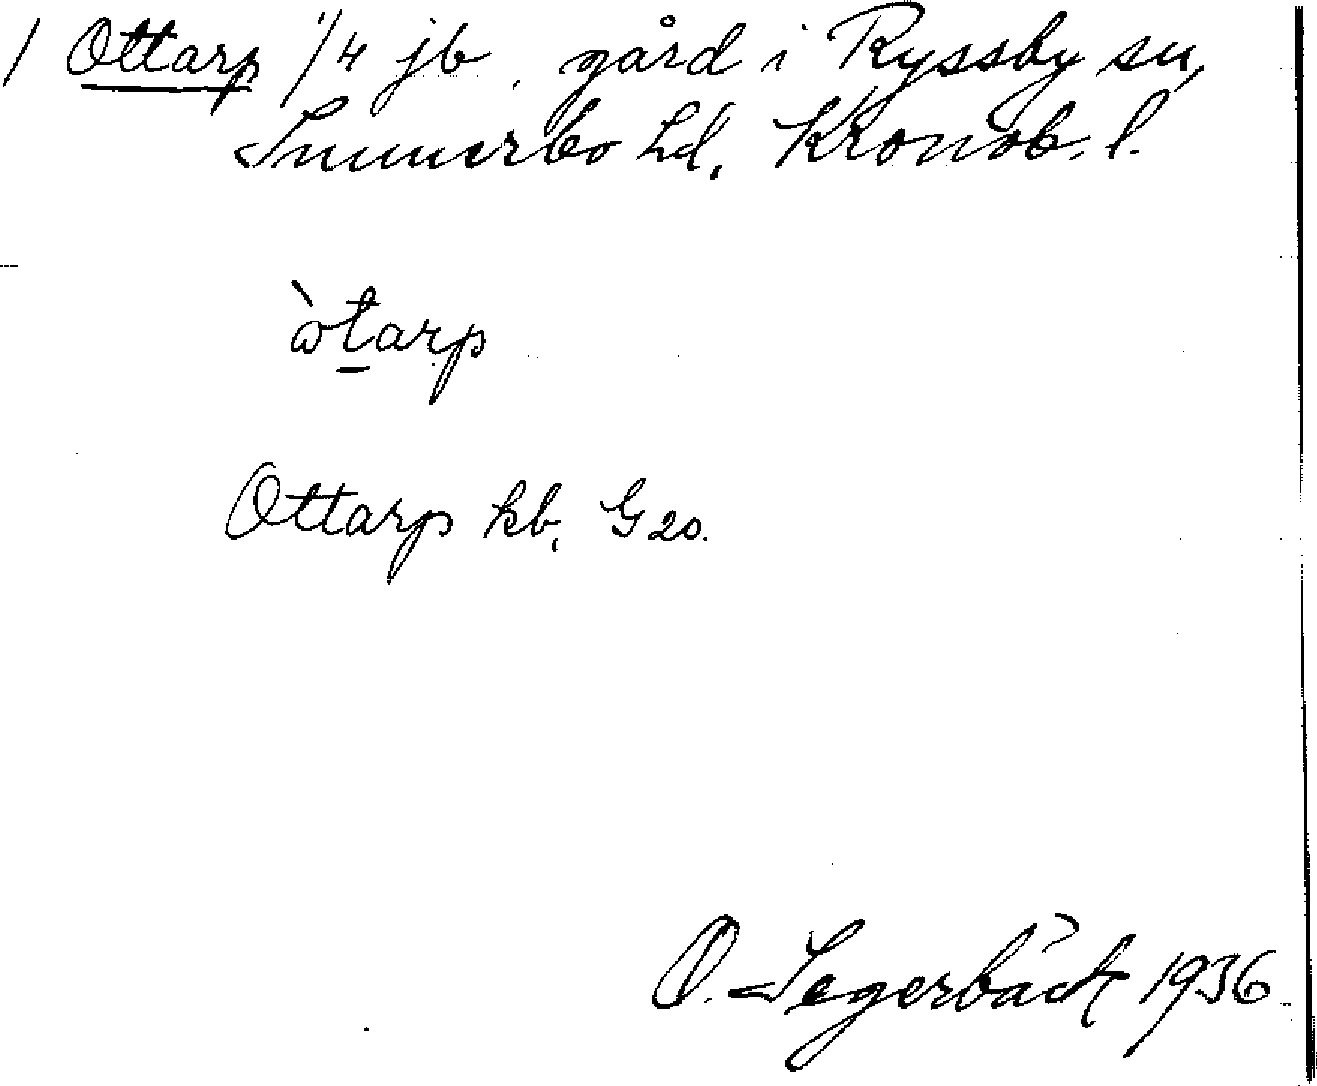 / Ottarp 1/4 jb. gård i Ryssby sn,
Sunnerbo hd, Kronob. l.
òtarp
Ottarp kb, G 20.
O. Segerbäck 1936